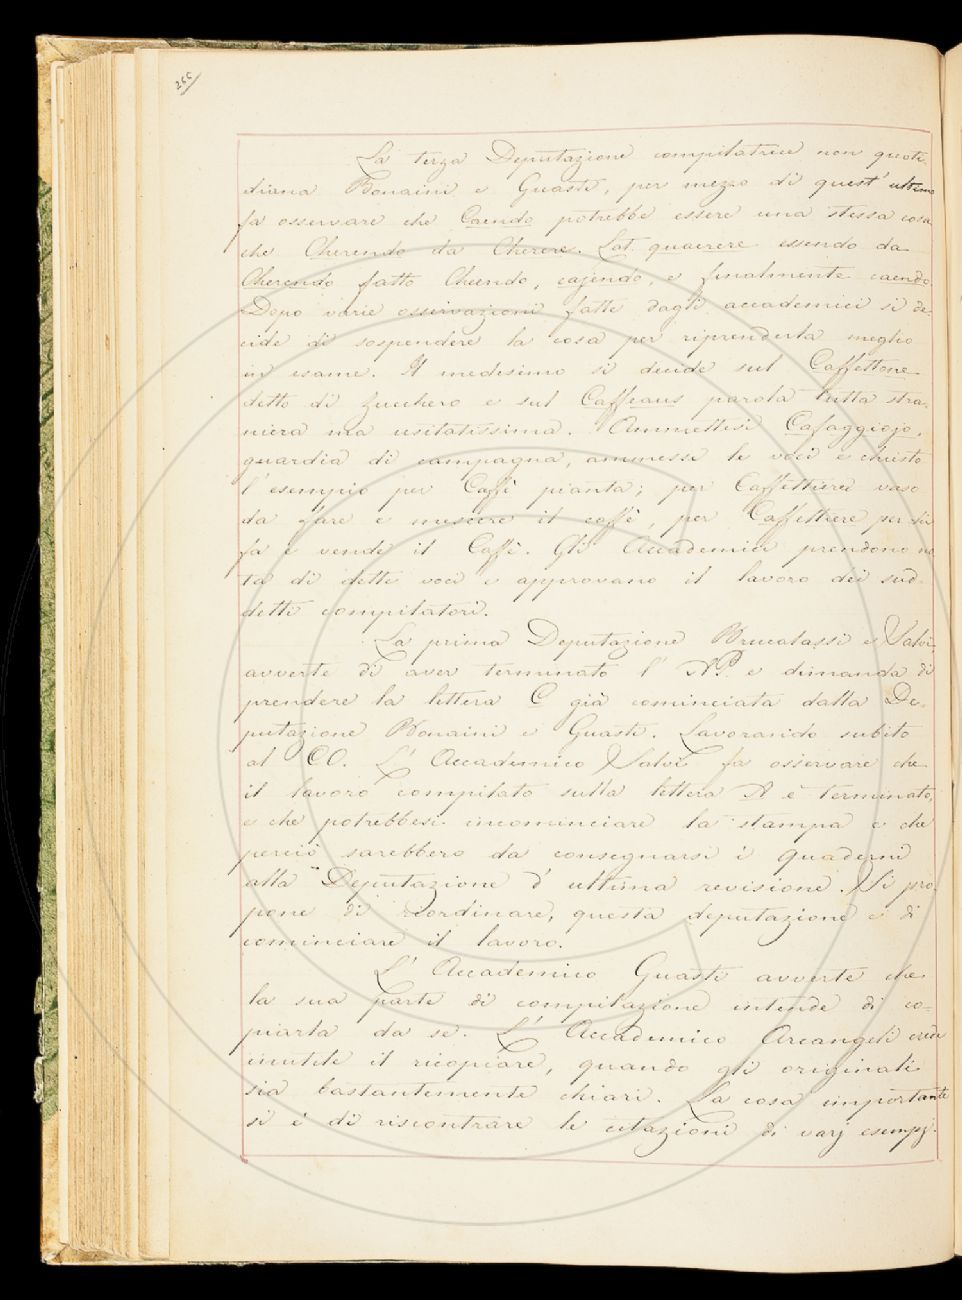 266
La terza Deputazione compilatrice non quoti-
diana Bonaini e Guasti, per mezzo di quest'ultimo
fa osservare che Caendo potrebbe essere una stessa cosa
che Cherendo da Cherere. Lat. quaerere essendo da
Cherendo fatto Cheendo, cajendo, e finalmente caendo.
Dopo varie osservazioni fatte dagli accademici si de-
cide di sospendere la cosa per riprenderla meglio
in esame. Il medesimo si decide sul Caffettone
detto di zucchero e sul Caffeaus parola tutta stra-
niera ma usitatissima. Ammettesi Cafaggiajo,
guardia di campagna, ammesse le voci e chiesto
l'esempio per Caffè pianta; per Caffettiera vaso
da fare e mescere il caffè, per Caffettiere per chi
fa e vende il Caffè. Gli Accademici prendono no
ta di dette voci e approvano il lavoro dei sud-
detti compilatori.
La prima Deputazione Brucalassi e Salvi,
avverte di aver terminato l' AP. e dimanda di
prendere la lettera C già cominciata dalla De-
putazione Bonaini e Guasti. Lavorando subito
al CO. L' Accademico Salvi fa osservare che
il lavoro compilato sulla lettera A è terminato,
e che potrebbesi incominciare la stampa e che
perciò sarebbero da consegnarsi i quaderni
alla Deputazione d' ultima revisione. Si pro-
pone di riordinare, questa deputazione e di
cominciare il lavoro.
L' Accademico Guasti avverte che
la sua parte di compilazione intende di co-
piarla da se. L' Accademico Arcangeli crede
inutile il ricopiare, quando gli originali
sia bastantemente chiari. La cosa importante
si è di riscontrare le citazioni di varj esempj.